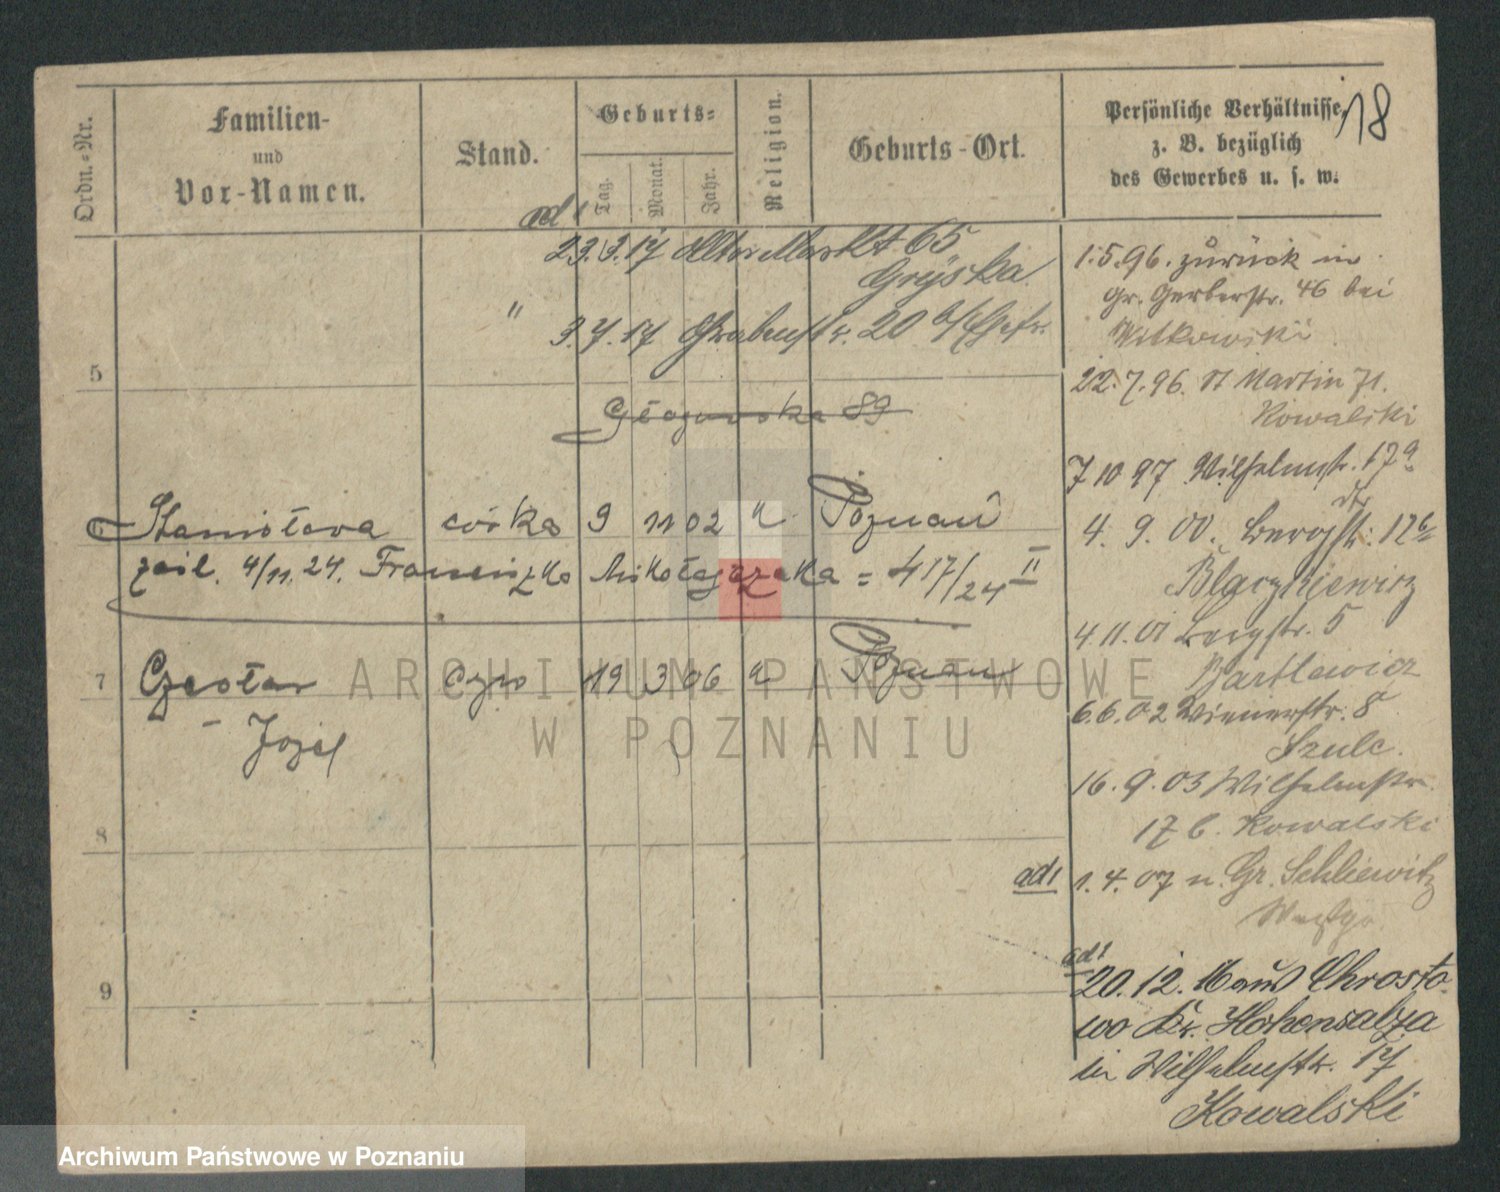 18
Ordn.-Nr.
Familien-
und
Vor-Namen.
Stand.
Geburts-
Tag.
Monat.
Jahr.
Religion.
Geburts-Ort.
Persönliche Verhältnisse
z. B. bezüglich
des Gewerbes u. s. w.
ad 1
23.3.17 Alter Markt 65
Gryska
" 3.7.17 Grabenstr. 20
5
Głogowska 89
6 Stanisława córka 9 11 02 k Poznań
zaśl. 4/11. 24. Franciszka Mikołajczaka = 417/24 II
7 Czesław syn 19 3 06 k Poznań
- Józef
8
9
1.5.96. zurück in
Gr. Gerberstr. 46 bei
Witkowski
22.7.96. St Martin 71.
Kowalski
7 10 97 Wilhelmstr. 17a
4. 9. 00. Bergstr. 12b
Blaczkiewicz
4.11.01 Bergstr. 5
Bartlewicz
6.6.02 Wienerstr. 8
Szulc.
16.9.03 Wilhelmstr.
17 b. Kowalski
ad 1 1.4.07 n. Gr. Schliewitz
Westpr.
ad 1
20.12.16 aus Chrosto-
wo Kr. Hohensalza
in Wilhelmstr. 17
Kowalski
ARCHIWUM PAŃSTWOWE
W POZNANIU
Archiwum Państwowe w Poznaniu